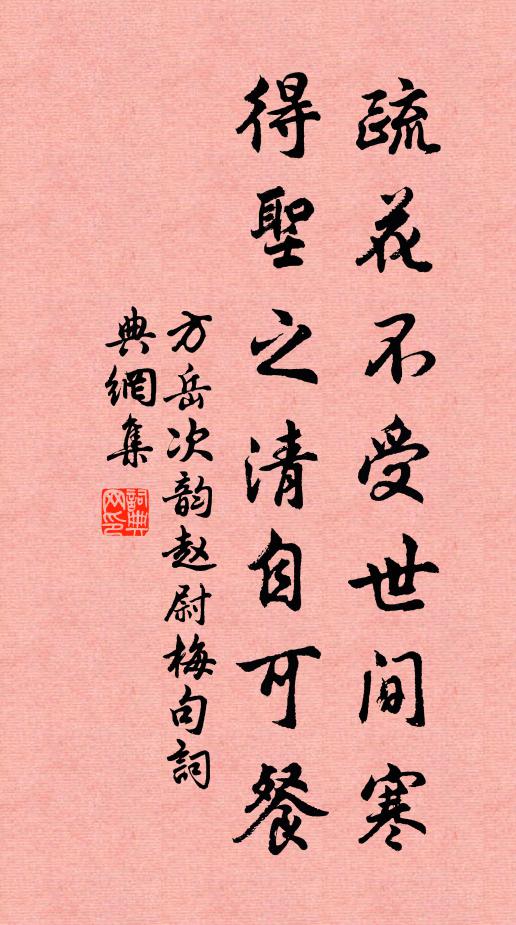 疏花不受世间寒
得聖之清自可餐
方岳次韵赵尉梅句詞
典網集
詞典网印